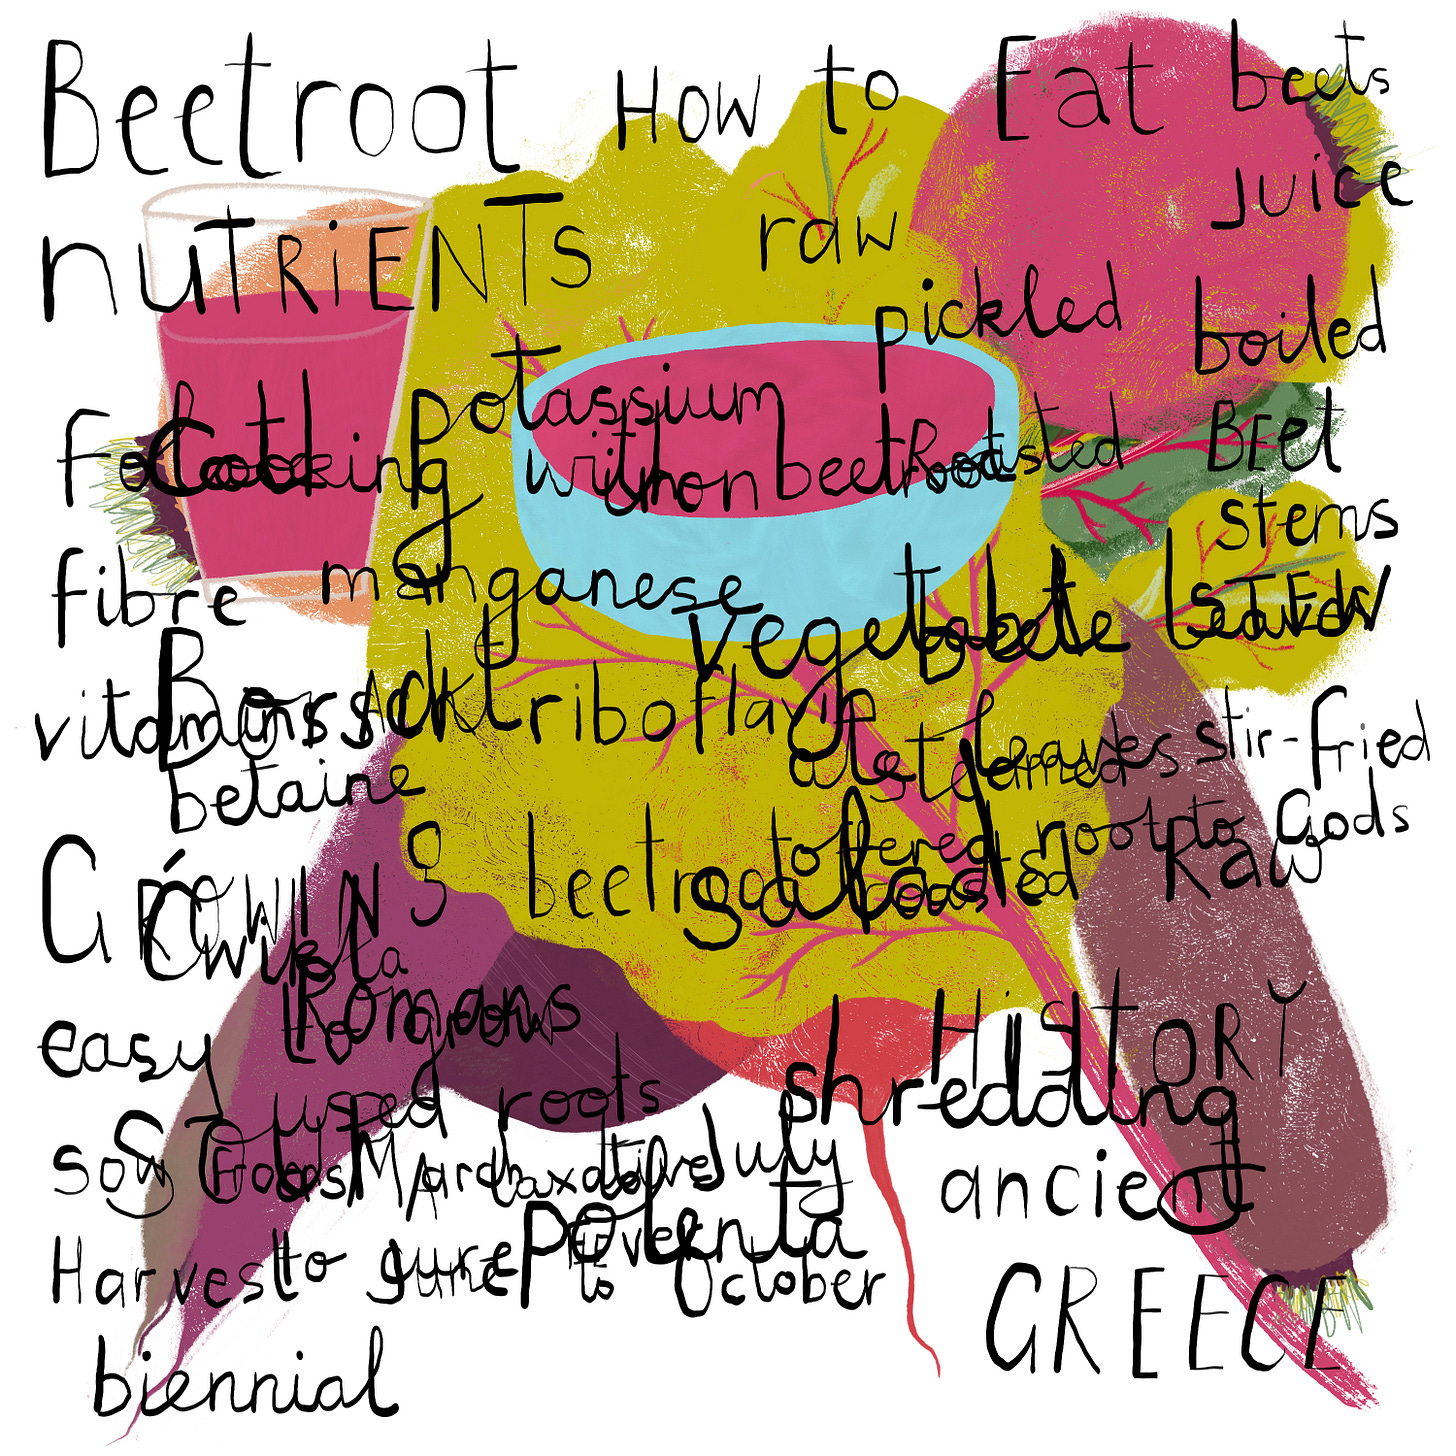 Beetroot
How to Eat beets
nutrients
raw
juice
pickled
boiled
potassium
Cooking with beetroot
Roasted
Beet
stems
iron
fibre
manganese
vegetable
Borscht
vitamins
riboflavin
betaine
ate leaves
steamed
stir-fried
offered root to Gods
beetroot
salad
roasted
Raw
Growing
Ćwikła
easy to grow
Romans
used roots
History
shredding
ancient
Greece
Sow
March
July
laxative
to cure fever
polenta
Harvest June to October
biennial